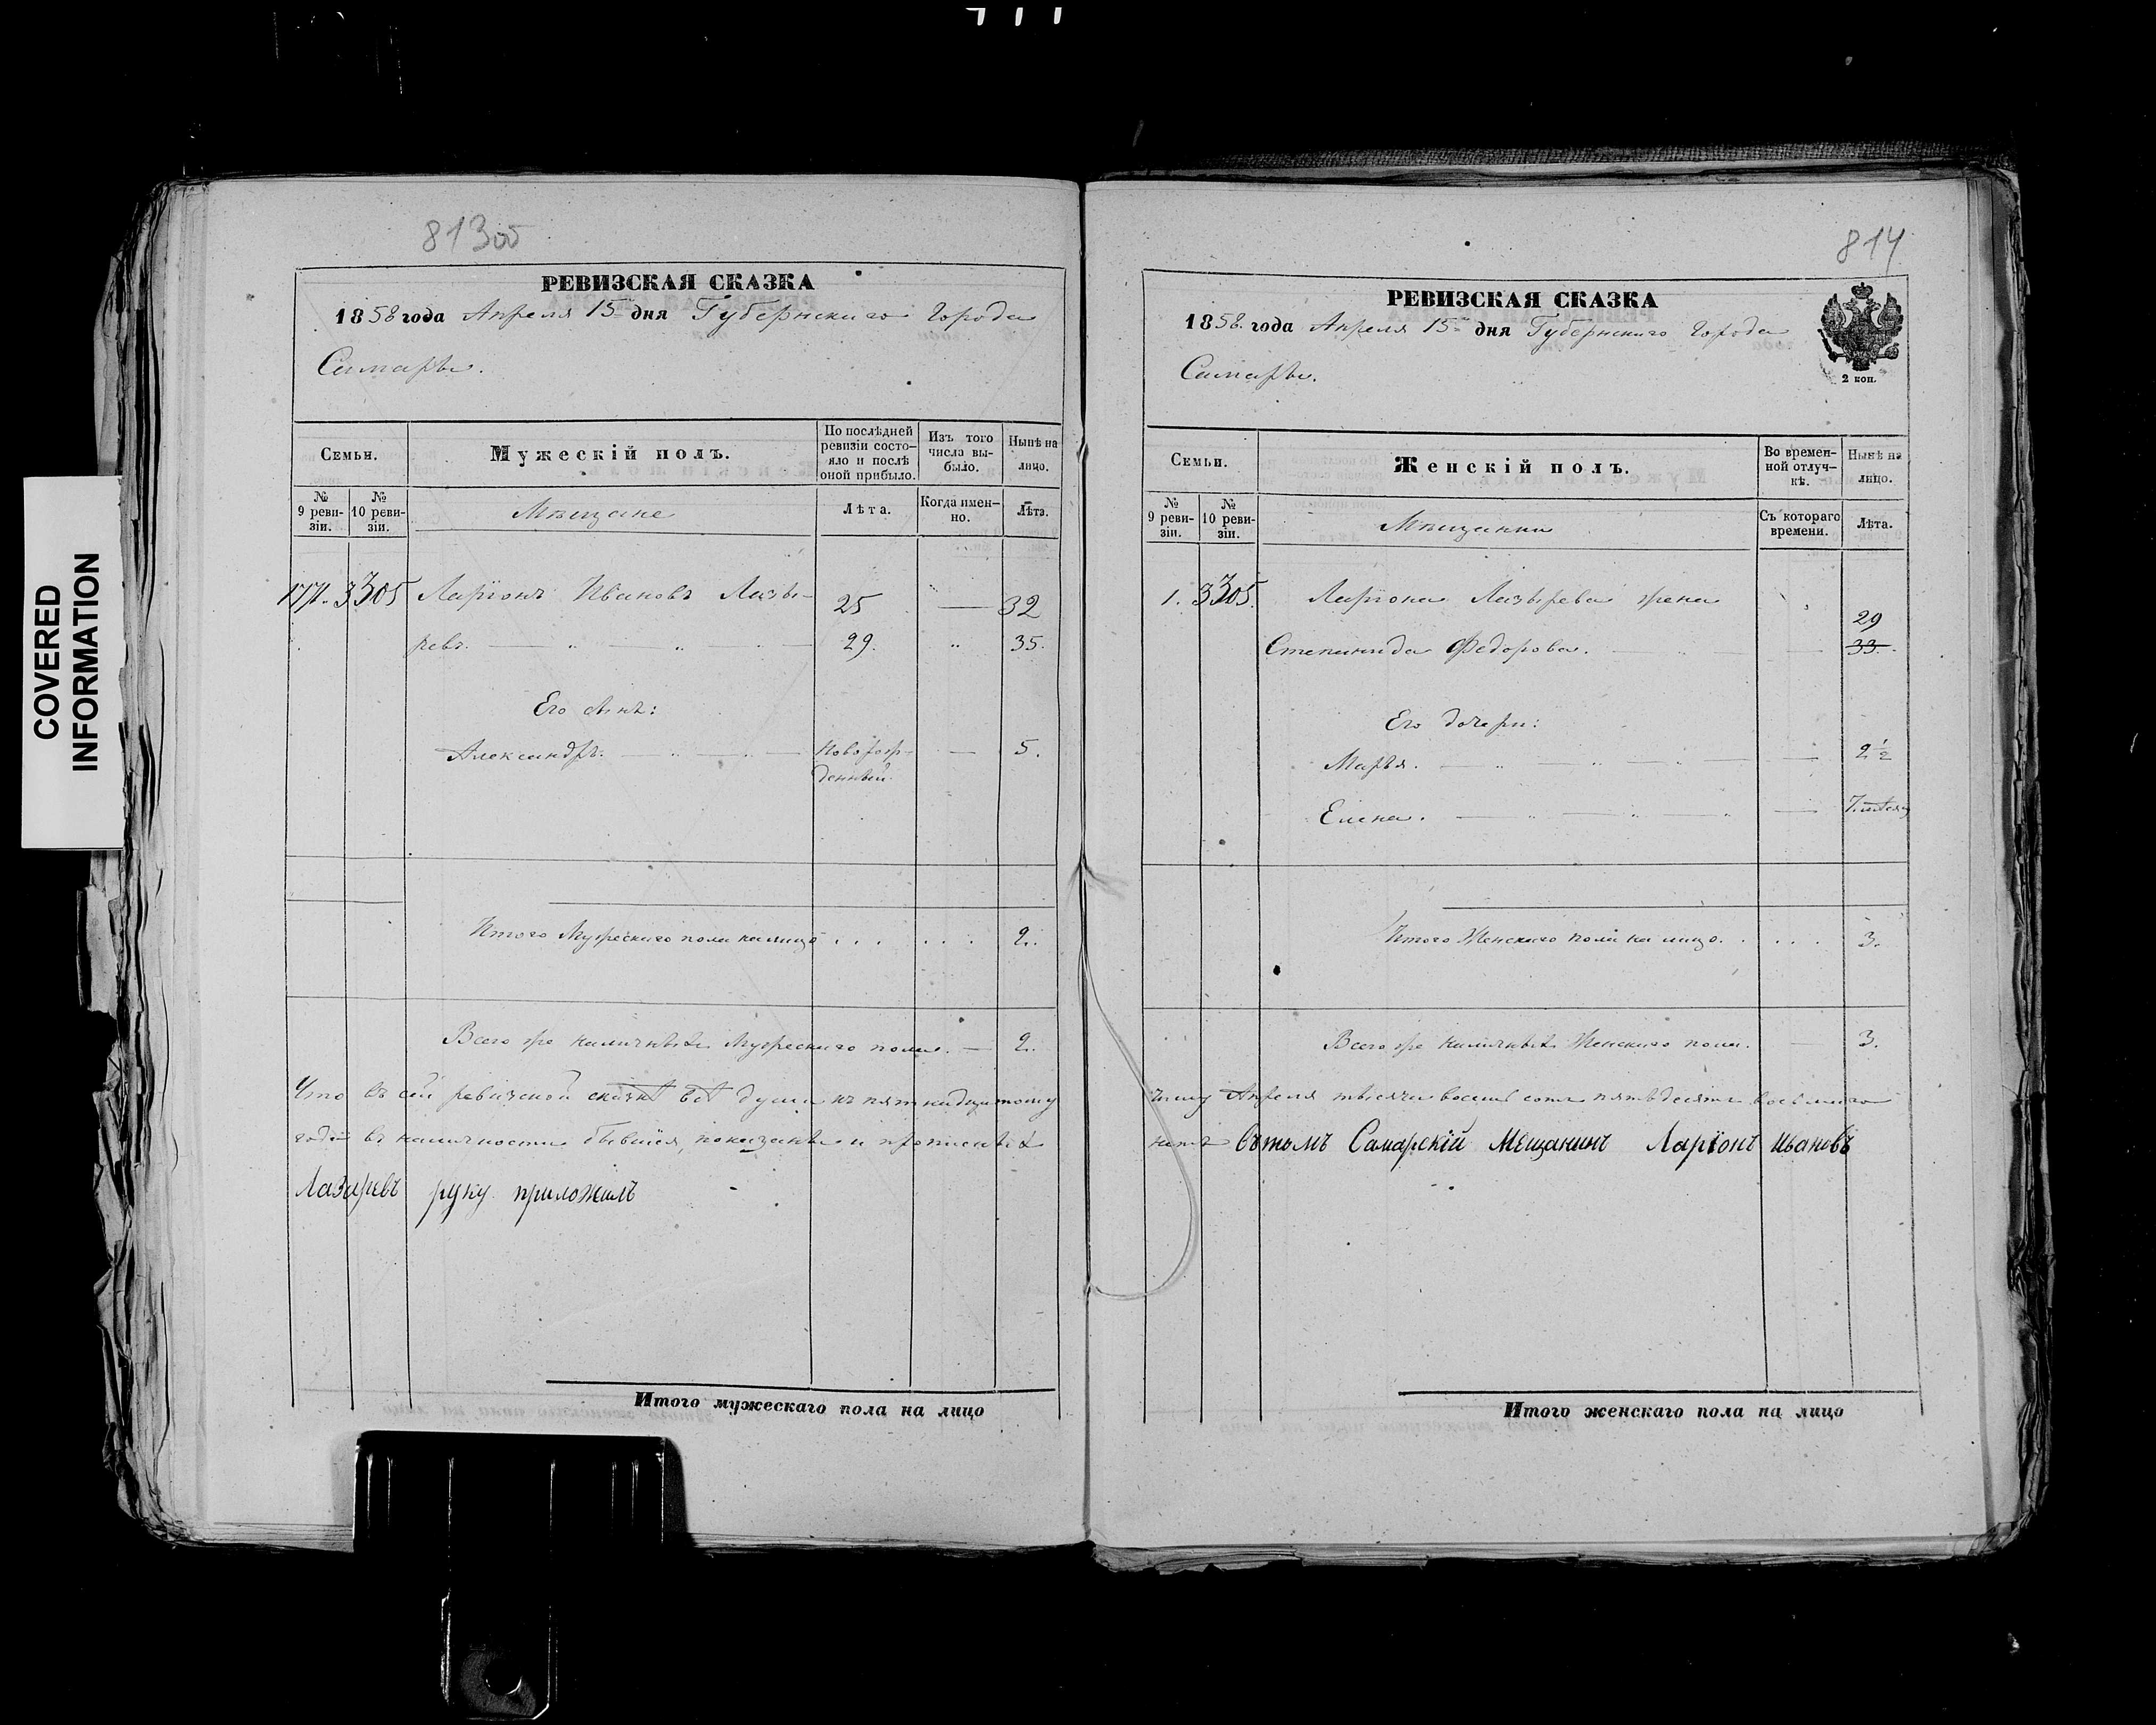 COVERED
INFORMATION
813об
РЕВИЗСКАЯ СКАЗКА
1858 года Апреля 15 дня Губернскаго Города
Самары.
Семьи.
Мужескій полъ.
По послѣдней ревизіи состо-яло и послѣ оной прибыло.
Изъ того числа вы-было.
Нынѣ на лицо.
№ 9 реви-зіи.
№ 10 реви-зіи.
Мѣщане
Лѣта.
Когда имен-но.
Лѣта.
1771. 3305 Ларіонъ Ивановъ Лазы- 25 — 32
ревъ. 29. " 35.
Его сынъ:
Александръ. Новорож- — 5.
денный.
Итого Мужескаго пола на лицо . . . . . . 2.
Всего же наличныхъ Мужескаго пола. — 2.
Что въ сей ревизской сказкѣ всѣ души къ пятнадцатому
годъ въ наличности бывшія, показаны и прописныхъ
Лазаревъ руку приложилъ
Итого мужескаго пола на лицо
814
РЕВИЗСКАЯ СКАЗКА
1858. года Апреля 15 дня Губернскаго Города
Самары.
2 коп.
Семьи.
Женскій полъ.
Во времен-ной отлуч-кѣ.
Нынѣ на лицо.
№ 9 реви-зіи.
№ 10 реви-зіи.
Мѣщанки
Съ котораго времени.
Лѣта.
1. 3305. Ларіона Лазырева жена
29
Степанида Федорова. — 33.
Его дочери:
Марья. — 2 1/2
Елена. — 7 мѣсяц
Итого Женскаго пола на лицо. . . . . 3.
Всего же наличныхъ Женскаго пола. — 3.
числу Апреля тысяча восемь сотъ пятьдесятъ восьмаго
нѣтъ вътомъ Самарскій Мещанинъ Ларіонъ Ивановъ
Итого женскаго пола на лицо